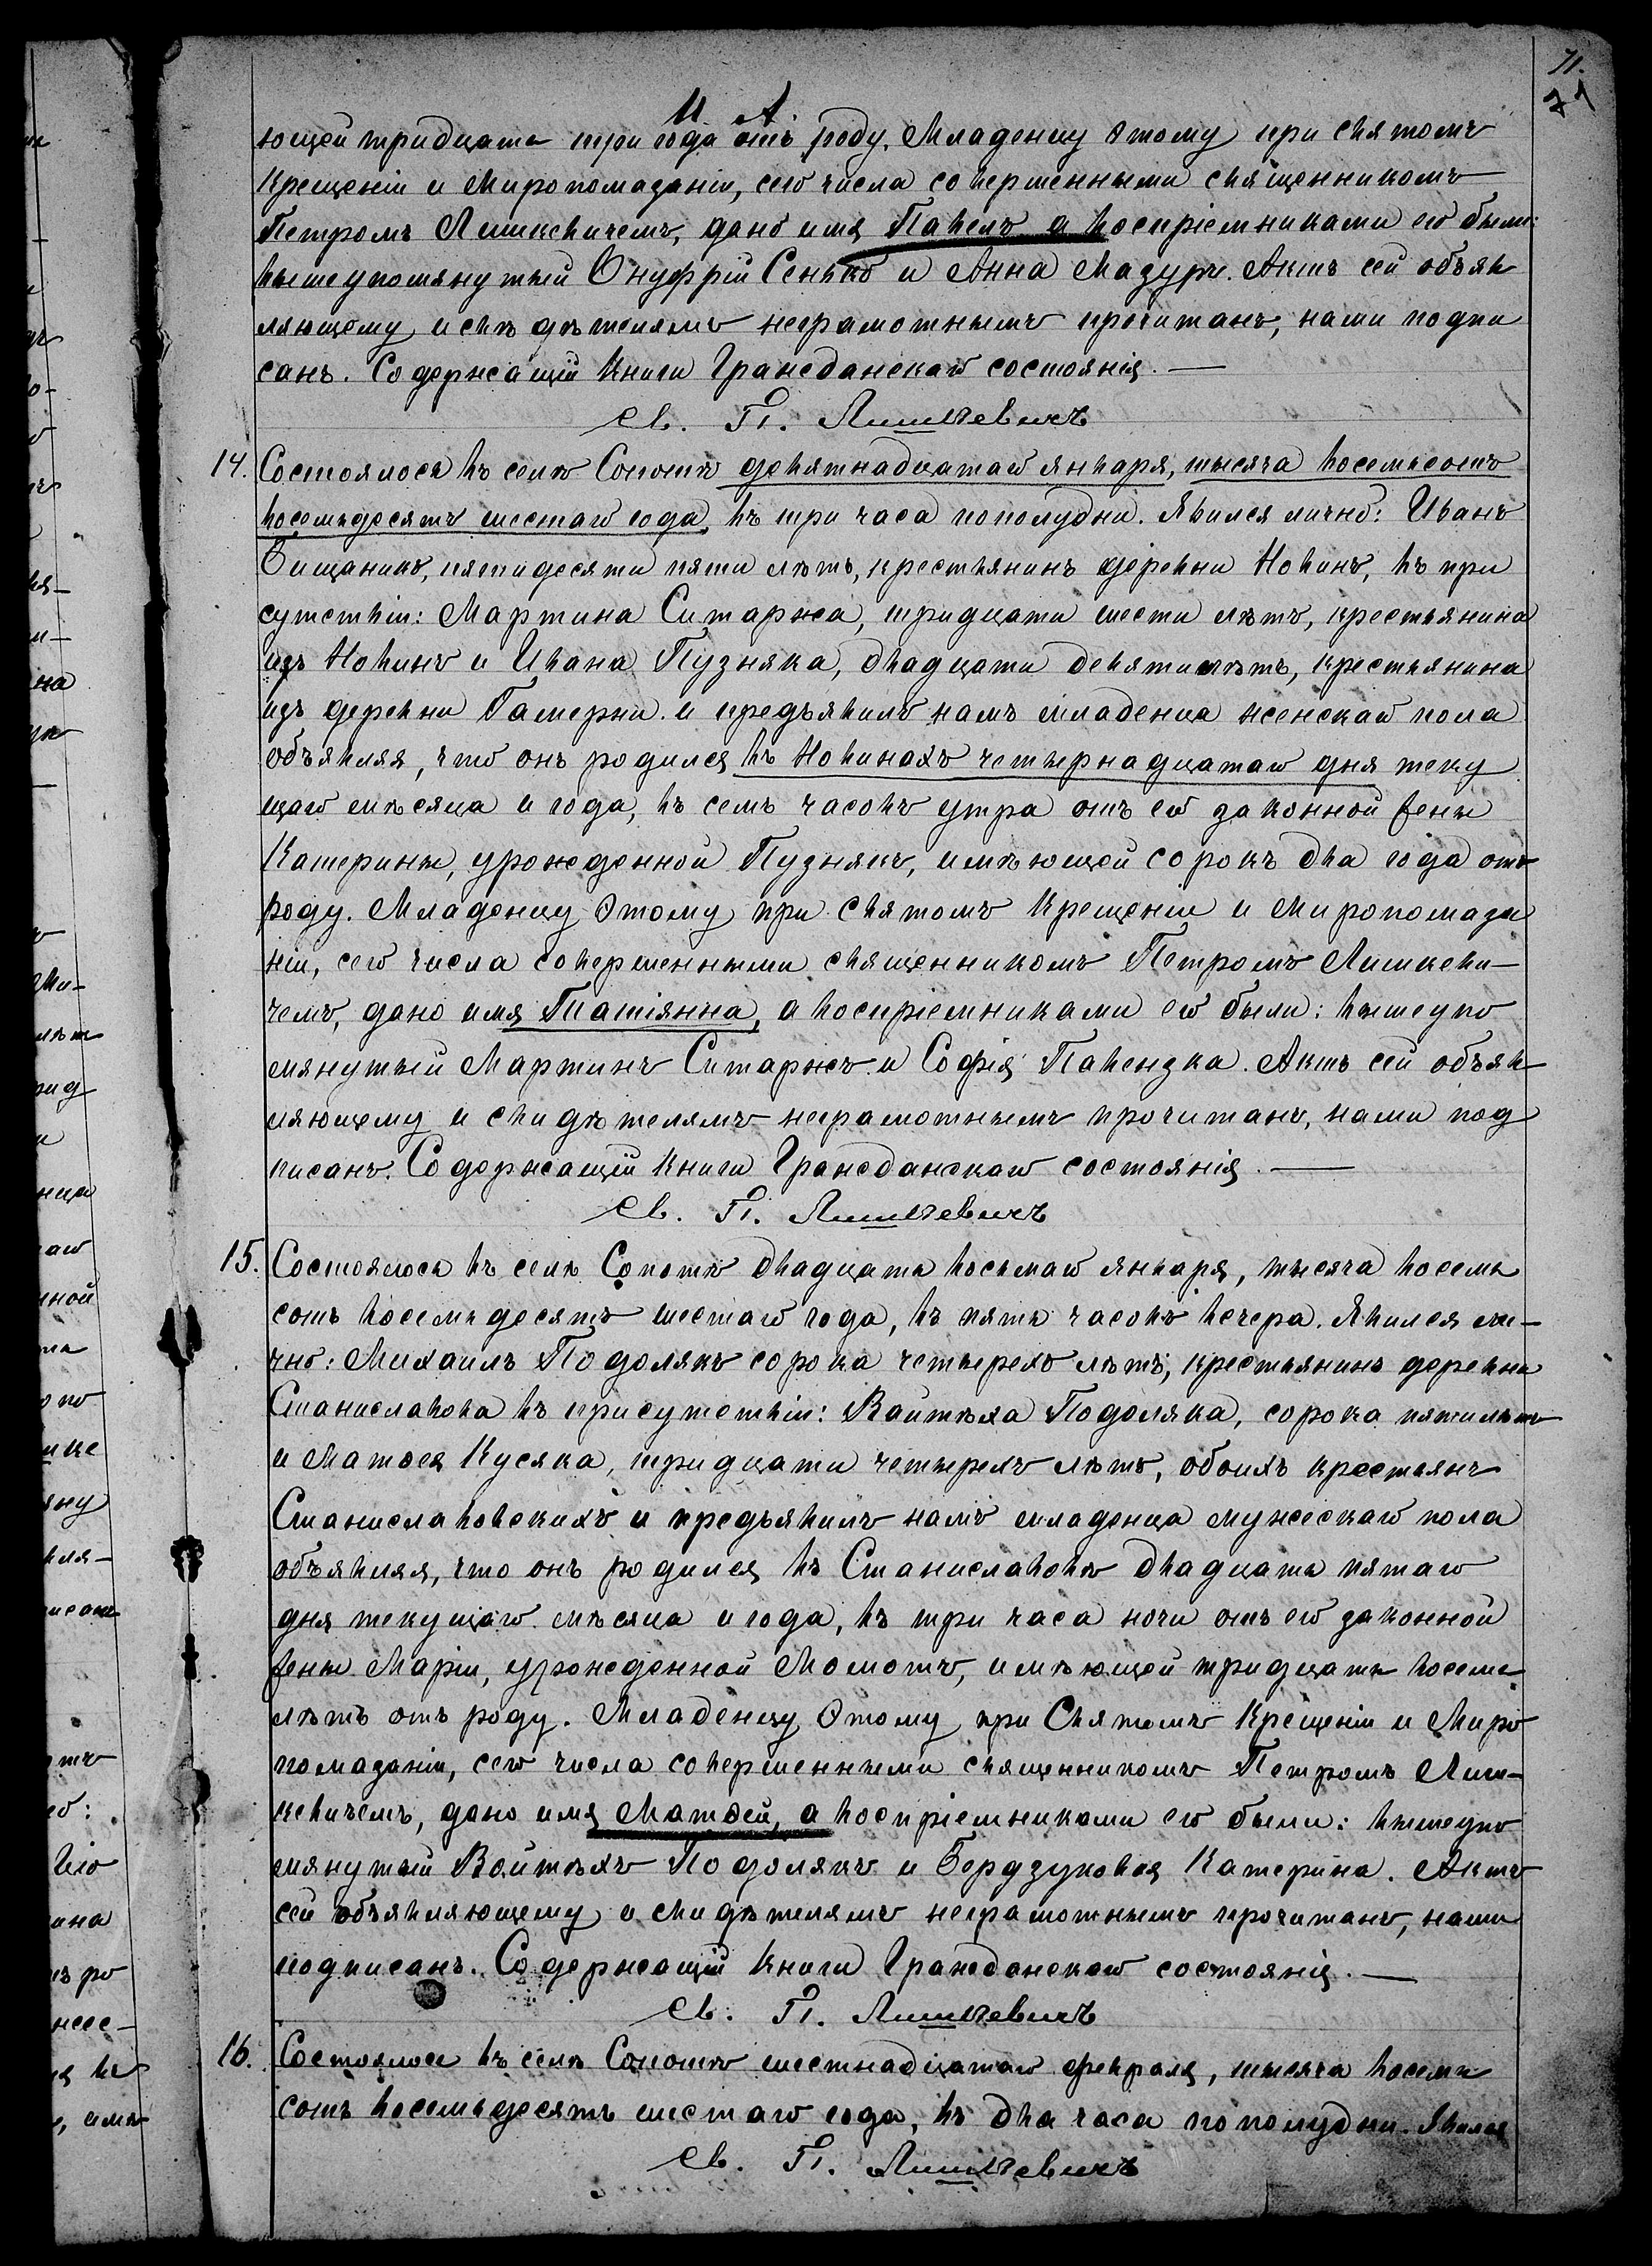 71.
71
И. А.
ющей тридцать три года отъ роду. Младенцу этому при святомъ
Крещеніи и Миропомазаніи, сего числа совершенными священникомъ
Петромъ Лишкевичемъ, дано имя Павелъ а воспріемниками его были:
вышеупомянутый Онуфрій Сенько и Анна Мазуръ. Актъ сей объяв
ляющему и свѣдѣтелямъ неграмотнымъ прочитанъ, нами подпи
санъ. Содержащій Книги Гражданскаго состоянія. —
Св. П. Лишкевичъ
14. Состоялось въ селѣ Сопотѣ девятнадцатаго января, тысяча восемьсотъ
восемьдесятъ шестаго года, въ три часа пополудни. Явился лично: Иванъ
Бищанинъ, пятидесяти пяти лѣтъ, крестьянинъ деревни Новинъ, въ при
сутствіи: Мартина Ситаржа, тридцати шести лѣтъ, крестьянина
изъ Новинъ и Ивана Пузняка, двадцати девяти лѣтъ, крестьянина
изъ деревни Гамерни и предъявилъ намъ младенца женскаго пола
объявляя, что онъ родился въ Новинахъ четырнадцатаго дня теку
щаго мѣсяца и года, въ семь часовъ утра отъ его законной жены
Катерины, урожденной Пузнякъ, имѣющей сорокъ два года отъ
роду. Младенцу этому при святомъ Крещеніи и Миропомаза
ніи, сего числа совершенными священникомъ Петромъ Лишкеви—
чемъ, дано имя Татіянна, а воспріемниками его были: вышеупо
мянутый Мартинъ Ситаржъ и Софія Павензка. Актъ сей объяв—
ляющему и свидѣтелямъ неграмотнымъ прочитанъ, нами под
писанъ. Содержащій Книги Гражданскаго состоянія. —
Св. П. Лишкевичъ
15. Состоялось въ селѣ Сопотѣ двадцать восьмаго января, тысяча восемь
сотъ восемьдесятъ шестаго года, въ пять часовъ вечера. Явился ли—
чно: Михаилъ Подолякъ сорока четырехъ лѣтъ, крестьянинъ деревни
Станиславова въ присутствіи: Войтѣха Подоляка, сорока пяти лѣтъ
и Матѳея Кусяка, тридцати четырехъ лѣтъ, обоихъ крестьянъ
Станиславовскихъ и предъявилъ намъ младенца мужескаго пола
объявляя, что онъ родился въ Станиславовѣ двадцать пятаго
дня текущаго мѣсяца и года, въ три часа ночи отъ его законной
жены Маріи, урожденной Момотъ, имѣющей тридцать восемь
лѣтъ отъ роду. Младенцу этому при Святомъ Крещеніи и Миро
помазаніи, сего числа совершенными священникомъ Петромъ Лиш—
кевичемъ, дано имя Матѳей, а воспріемниками его были: вышеупо
мянутый Войтѣхъ Подолякъ и Бердзуховая Катерина. Актъ
сей объявляющему и свидѣтелямъ неграмотнымъ прочитанъ, нами
подписанъ. Содержащій Книги Гражданскаго состоянія. —
Св. П. Лишкевичъ
16. Состоялось въ селѣ Сопотѣ шестнадцатаго февраля, тысяча восемь
сотъ восемьдесятъ шестаго года, въ два часа пополудни. Явился
Св. П. Лишкевичъ